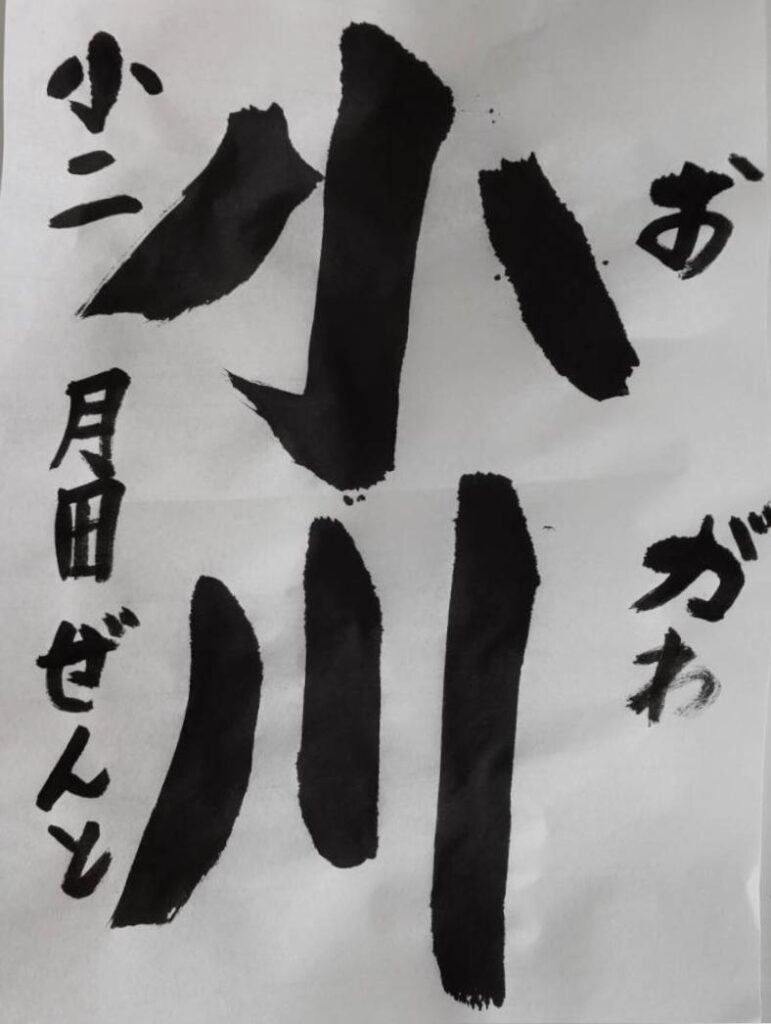 おがわ
小川
小二 月田ぜんと